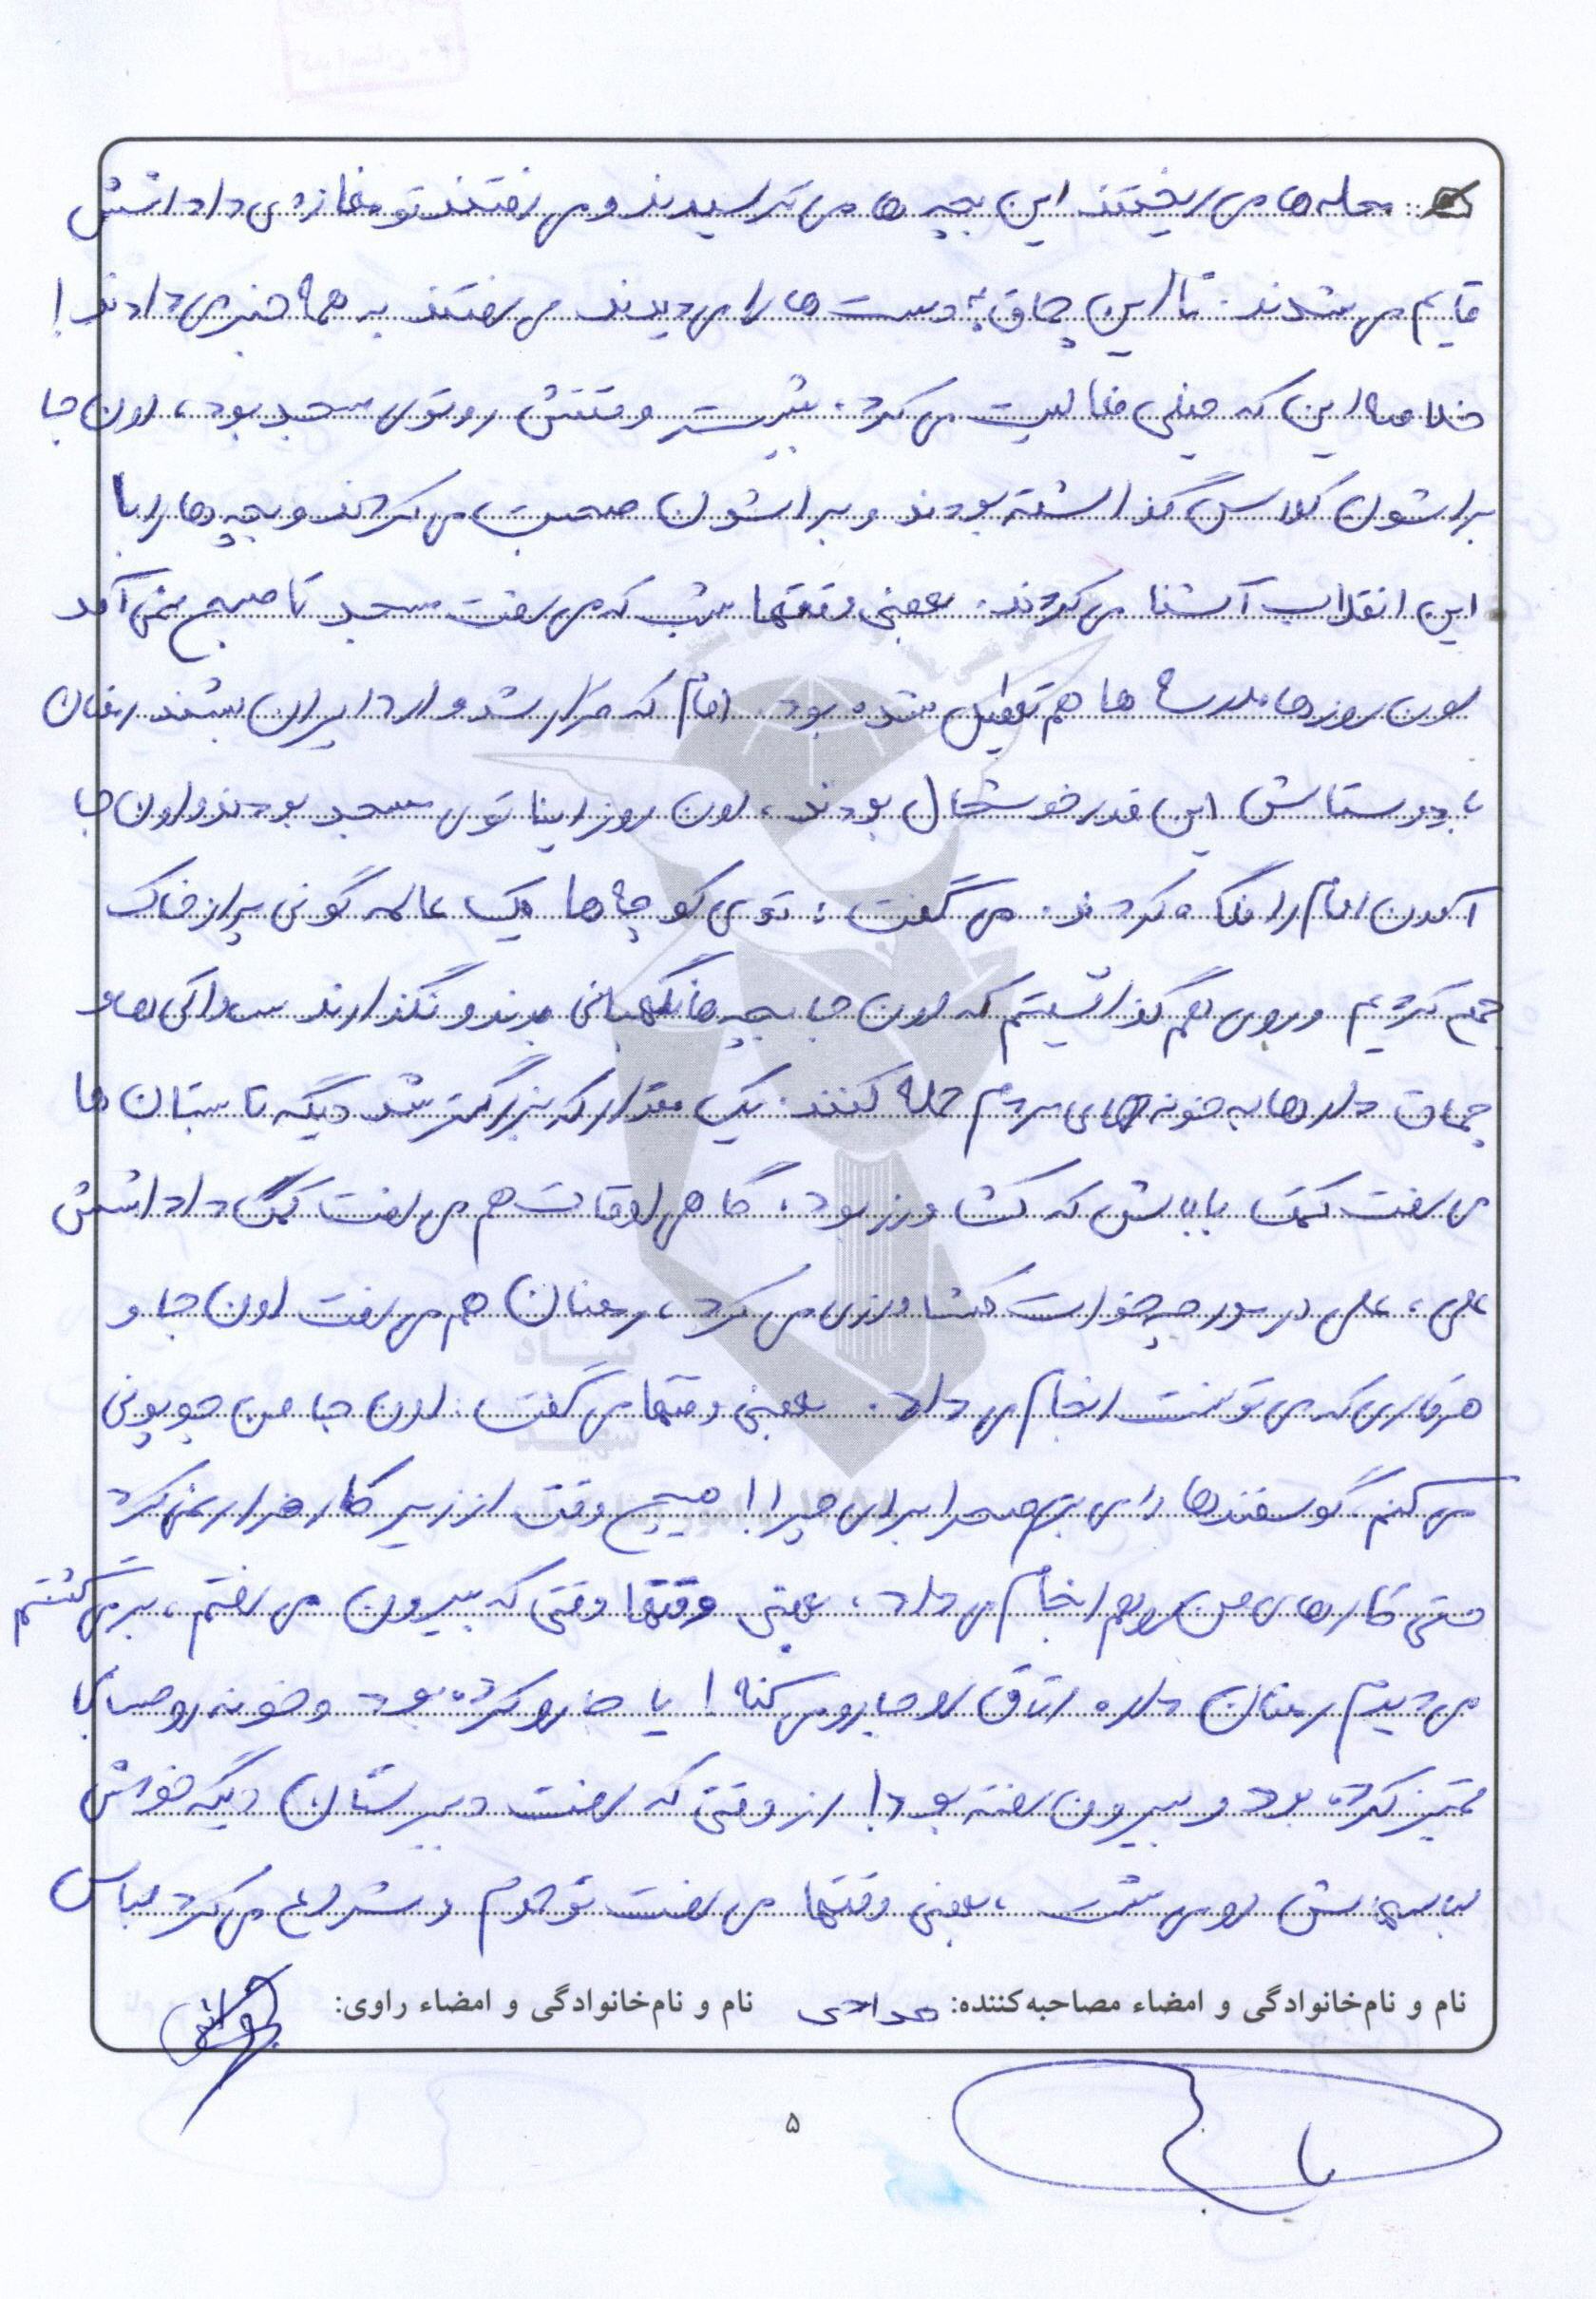 محله‌ها می‌ریختند این بچه‌ها می‌ترسیدند و می‌رفتند تو مغازه‌ی داداشش
قایم می‌شدند. تا این چماق به دست‌ها را می‌دیدند می‌رفتند به همه خبر می‌دادند!
خلاصه این که خیلی فعالیت می‌کرد. بیشتر وقتش رو توی مسجد بود، اون جا
براشون کلاس گذاشته بودند و براشون صحبت می‌کردند و بچه‌ها را با
این انقلاب آشنا می‌کردند. بعضی وقتها شب که می‌رفت مسجد تا صبح نمی‌آمد
اون روزها مدرسه‌ها هم تعطیل شده بود. امام که قرار شد وارد ایران بشند رمضان
با دوستاش این قدر خوشحال بودند، اون روز اینا توی مسجد بودند و اون جا
آمدن امام را نگاه کردند. می‌گفت: توی کوچه‌ها یک عالمه گونی پر از خاک
جمع کردیم و روی هم گذاشتیم که اون جا بچه‌ها نگهبانی بدند و نگذارند ساواکی‌ها و
چماق دارها به خونه‌های مردم حمله کنند. یک مقدار که بزرگتر شد دیگه تابستان‌ها
می‌رفت کمک باباش که کشاورز بود، گاهی اوقات هم می‌رفت کمک داداشش
علی، علی در مورچه‌خورت کشاورزی می‌کرد، رمضان هم می‌رفت اون جا و
هر کاری که می‌تونست انجام می‌داد. بعضی وقتها می‌گفت: اون جا من چوپونی
می‌کنم، گوسفندها را می‌برم صحرا برای چرا! هیچ وقت از زیر کار فرار نمی‌کرد
حتی کارهای من رو هم انجام می‌داد، بعضی وقتها وقتی که بیرون می‌رفتم، برمی‌گشتم
می‌دیدم رمضان داره اتاق رو جارو می‌کنه! یا جارو کرده بود و خونه رو حسابی
تمیز کرده بود و بیرون رفته بود! از وقتی که رفت دبیرستان دیگه خودش
لباسهاش رو می‌شست، بعضی وقتها می‌رفت تو حموم و شروع می‌کرد لباس
نام و نام‌خانوادگی و امضاء مصاحبه‌کننده: نام و نام‌خانوادگی و امضاء راوی:
۵